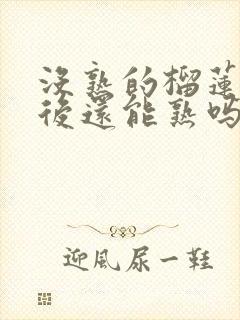 沒熟的榴蓮
後還能熟嗎
迎風尿一鞋